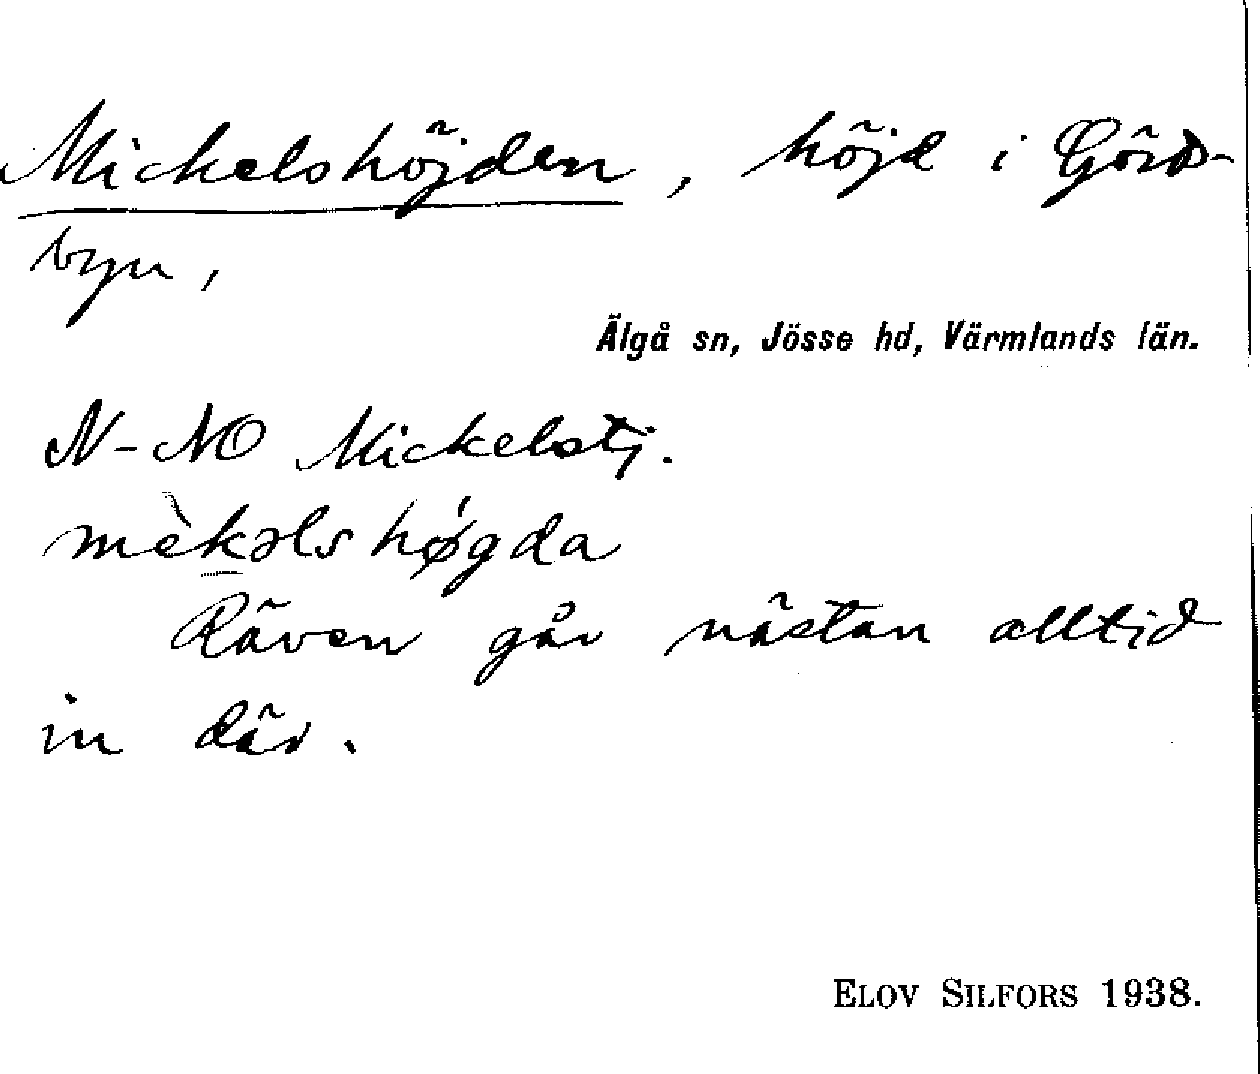 Mickelshöjden, höjd i Görs-
byn,
Älgå sn, Jösse hd, Värmlands län.
N-NO Mickelstj.
mèkəls høgda
Räven går nästan alltid
in där.
ELOV SILFORS 1938.